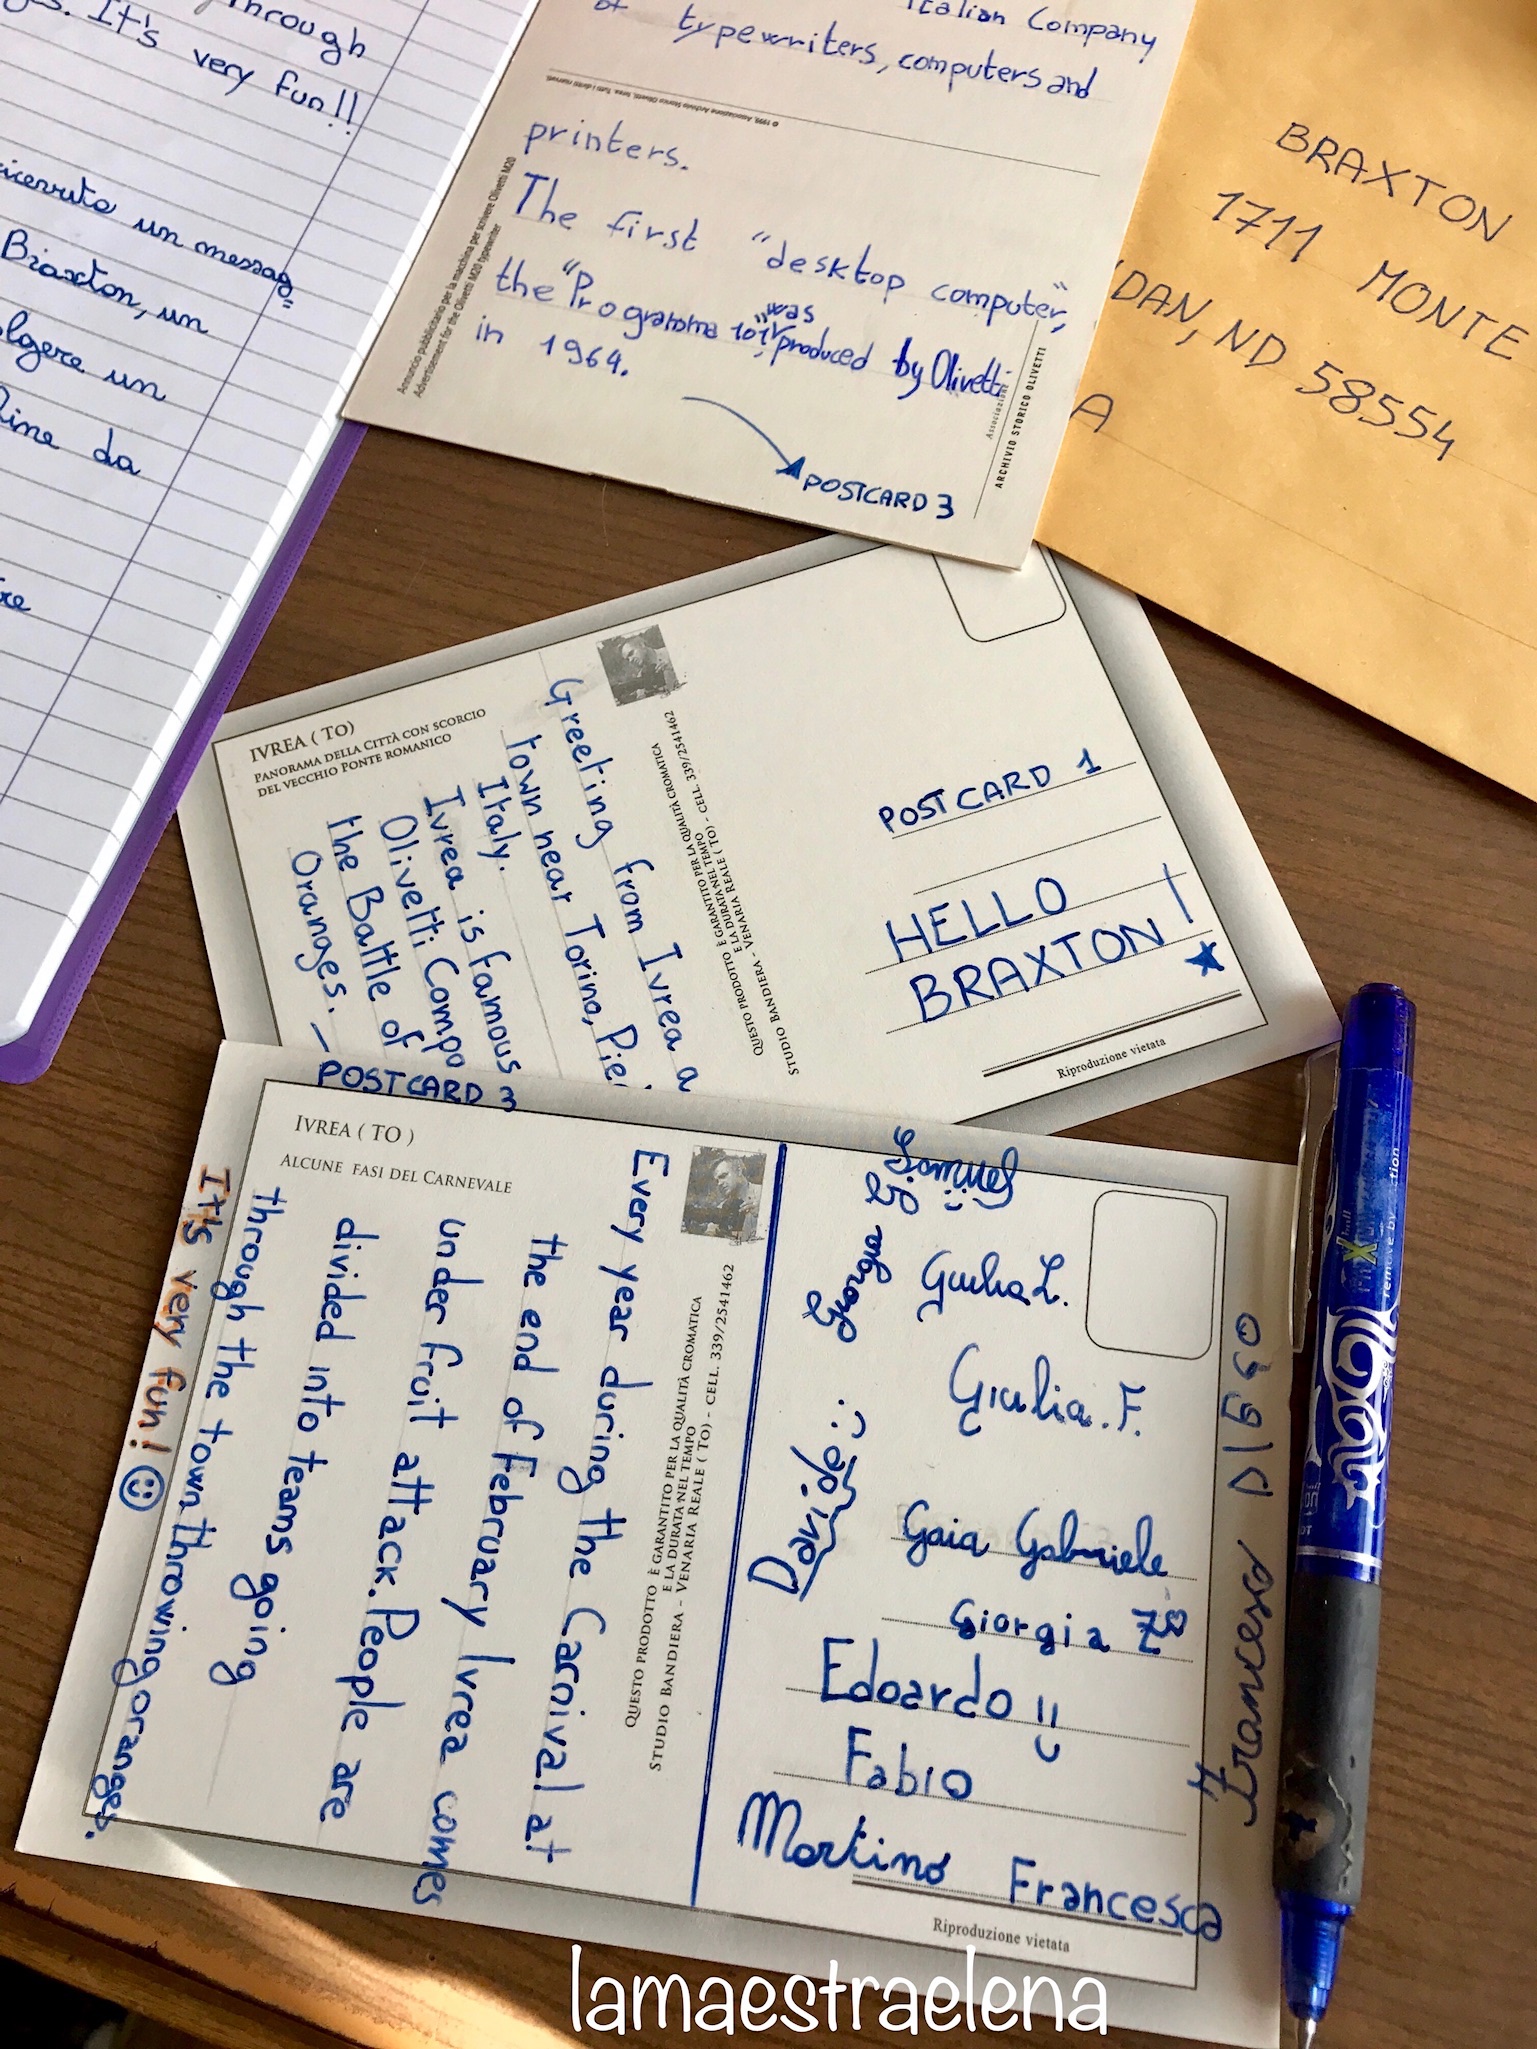 through
It's
very fun!!
un messag=
Braxton, un
un
da
Italian Company
of typewriters, computers and
© 1999, Associazione Archivio Storico Olivetti, Ivrea. Tutti i diritti riservati.
printers.
The first "desktop computer",
the "Programma 101", was produced by Olivetti
in 1964.
POSTCARD 3
Annuncio pubblicitario per la macchina per scrivere Olivetti M20
Advertisement for the Olivetti M20 typewriter
Associazione
ARCHIVIO STORICO OLIVETTI
BRAXTON
1711 MONTE
DAN, ND 58554
A
IVREA ( TO )
PANORAMA DELLA CITTÀ CON SCORCIO
DEL VECCHIO PONTE ROMANICO
Greeting from Ivrea a
town near Torino, Pie
Italy.
Ivrea is famous
Olivetti Compa
the Battle of
Oranges. –
POSTCARD 3
QUESTO PRODOTTO È GARANTITO PER LA QUALITÀ CROMATICA
E LA DURATA NEL TEMPO
STUDIO BANDIERA - VENARIA REALE ( TO ) - CELL. 339/2541462
POSTCARD 1
HELLO
BRAXTON !
Riproduzione vietata
IVREA ( TO )
ALCUNE FASI DEL CARNEVALE
Every year during the Carnival at
the end of February Ivrea comes
under fruit attack. People are
divided into teams going
through the town throwing oranges.
It's very fun!
QUESTO PRODOTTO È GARANTITO PER LA QUALITÀ CROMATICA
E LA DURATA NEL TEMPO
STUDIO BANDIERA - VENARIA REALE ( TO ) - CELL. 339/2541462
Samuel
Giorgia G
Giulia L.
Giulia. F.
Davide
Gaia Gabriele
Giorgia Z
Edoardo
Fabio
Martino Francesca
Francesco DIEGO
Riproduzione vietata
lamaestraelena